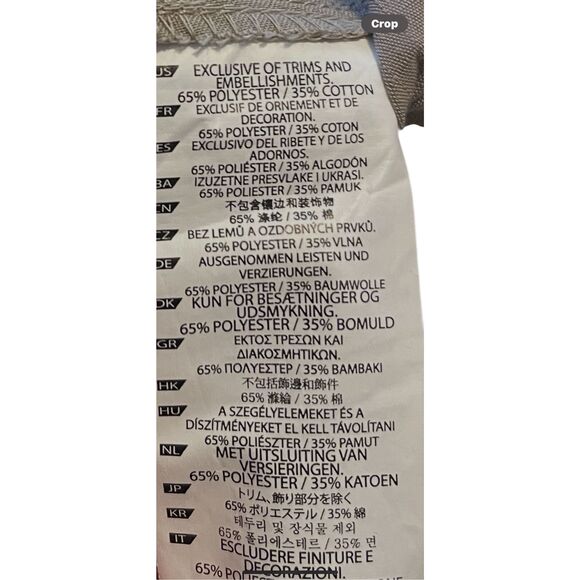 Crop
US EXCLUSIVE OF TRIMS AND
EMBELLISHMENTS.
65% POLYESTER / 35% COTTON
FR EXCLUSIF DE ORNEMENT ET DE
DECORATION.
65% POLYESTER / 35% COTON
ES EXCLUSIVO DEL RIBETE Y DE LOS
ADORNOS.
65% POLIÉSTER / 35% ALGODÓN
BA IZUZETNE PRESVLAKE I UKRASI.
65% POLIESTER / 35% PAMUK
CN 不包含镶边和装饰物
65% 涤纶 / 35% 棉
CZ BEZ LEMŮ A OZDOBNÝCH PRVKŮ.
65% POLYESTER / 35% VLNA
DE AUSGENOMMEN LEISTEN UND
VERZIERUNGEN.
65% POLYESTER / 35% BAUMWOLLE
DK KUN FOR BESÆTNINGER OG
UDSMYKNING.
65% POLYESTER / 35% BOMULD
GR ΕΚΤΟΣ ΤΡΕΣΩΝ ΚΑΙ
ΔΙΑΚΟΣΜΗΤΙΚΩΝ.
65% ΠΟΛΥΕΣΤΕΡ / 35% ΒΑΜΒΑΚΙ
HK 不包括飾邊和飾件
65% 滌綸 / 35% 棉
HU A SZEGÉLYELEMEKET ÉS A
DÍSZÍTMÉNYEKET EL KELL TÁVOLÍTANI
65% POLIÉSZTER / 35% PAMUT
NL MET UITSLUITING VAN
VERSIERINGEN.
65% POLYESTER / 35% KATOEN
JP トリム、飾り部分を除く
65% ポリエステル / 35% 綿
KR 테두리 및 장식물 제외
65% 폴리에스테르 / 35% 면
IT ESCLUDERE FINITURE E
DECORAZIONI.
65% POLIESTERE / 35% COTONE